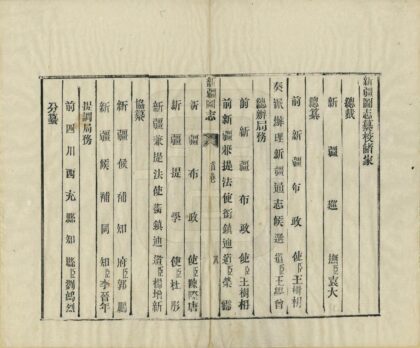 新疆圖志纂校諸家
總裁
新疆巡撫臣袁大
總纂
前新疆布政使臣王樹枏
奏派辦理新疆通志候選道臣王學曾
總辦局務
前新疆布政使臣王樹枏
前新疆兼提法使銜鎮迪道臣榮霈
新疆圖志
新疆布政使臣陳際唐
新疆提學使臣杜彤
新疆兼提法使銜鎮迪道臣楊增新
協纂
新疆候補知府臣郭鵬
新疆候補同知臣李晉年
提調局務
前四川西充縣知縣臣劉鴻烈
分纂